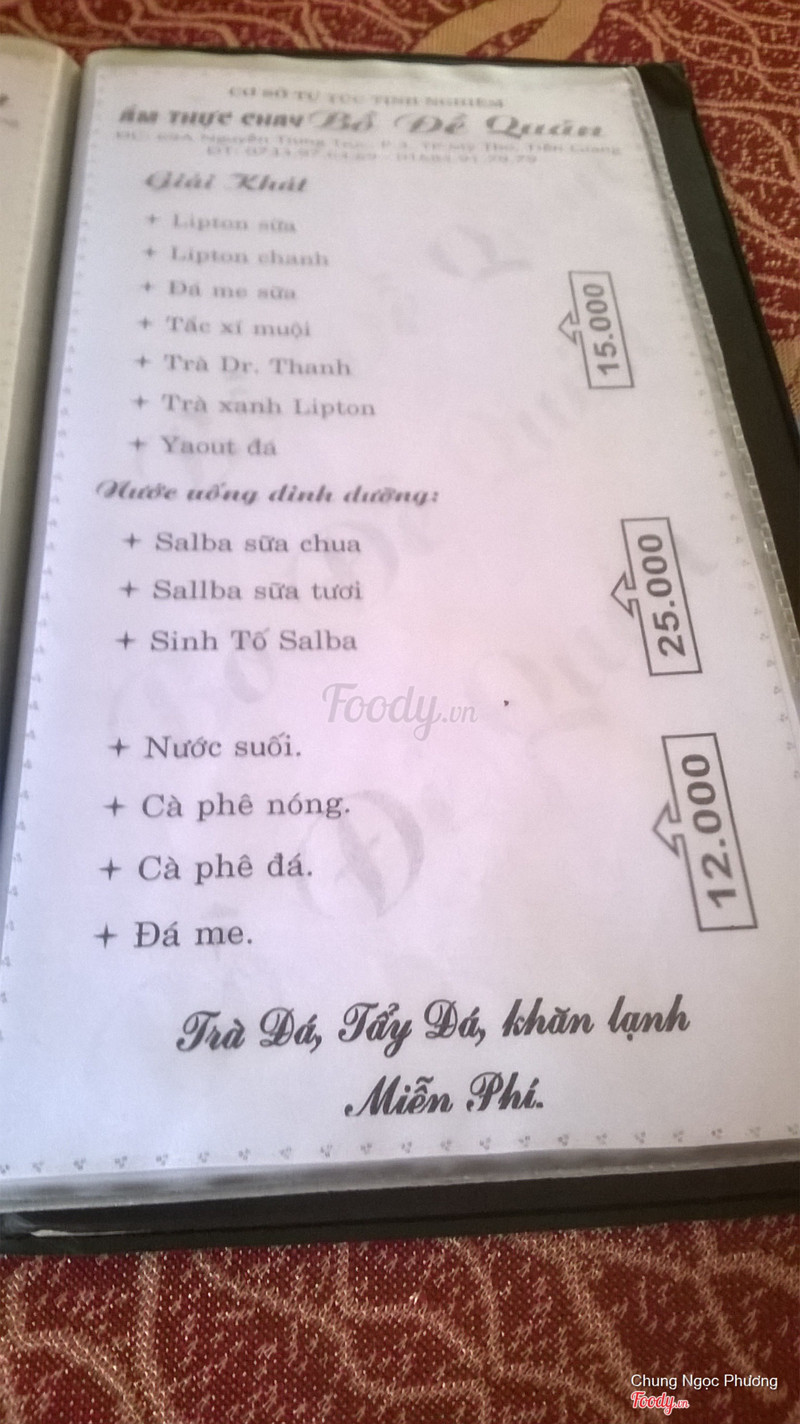 CƠ SỞ TỰ TÚC TỊNH NGHIÊM
ẨM THỰC CHAY Bồ Đề Quán
ĐC: 69A Nguyễn Trung Trực, P.3, TP Mỹ Tho, Tiền Giang
Giải Khát
+ Lipton sữa
+ Lipton chanh
+ Đá me sữa
+ Tắc xí muội
+ Trà Dr. Thanh
+ Trà xanh Lipton
+ Yaout đá
15.000
Nước uống dinh dưỡng:
+ Salba sữa chua
+ Sallba sữa tươi
+ Sinh Tố Salba
25.000
Foody.vn
+ Nước suối.
+ Cà phê nóng.
+ Cà phê đá.
+ Đá me.
12.000
Trà Đá, Tẩy Đá, khăn lạnh
Miễn Phí.
Chung Ngọc Phương
Foody.vn